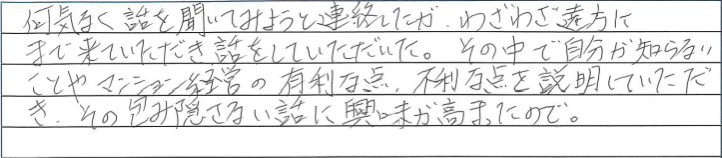 何気なく話を聞いてみようと連絡したが、わざわざ遠方に
まで来ていただき話をしていただいた。その中で自分が知らない
ことやマンション経営の有利な点、不利な点を説明していただ
き、その包み隠さない話に興味が高まったので。